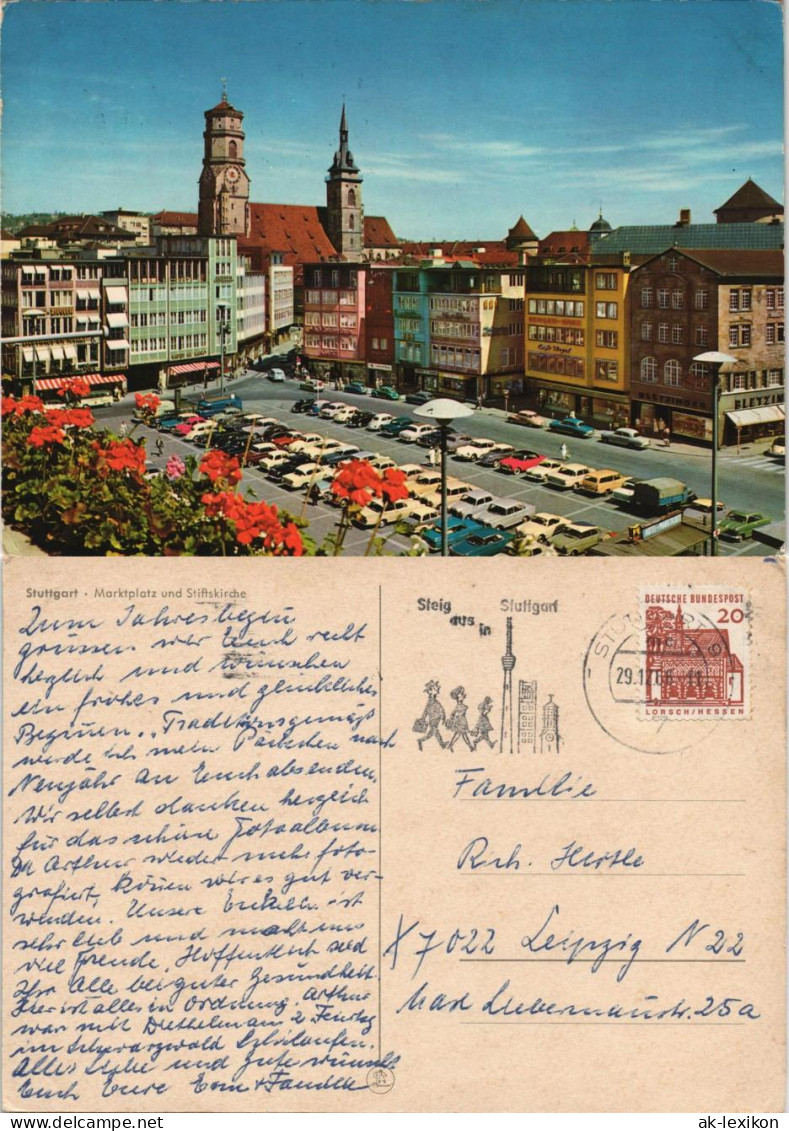 Stuttgart · Marktplatz und Stiftskirche
Zum Jahresbeginn
grüssen wir Euch recht
herzlich und wünschen
ein frohes und glückliches
Beginnen. Traditionsgemäß
werde ich mein Päckchen nach
Neujahr an Euch absenden.
Wir selbst danken herzlich
für das schöne Fotoalbum
Da Arthur wieder mehr foto-
grafiert, können wir es gut ver-
wenden. Unsere Enkelin ist
sehr lieb und macht uns
viel Freude. Hoffentlich seid
Ihr Alle bei guter Gesundheit.
Hier ist alles in Ordnung. Arthur
war mit Diethelm am 2. Feiertag
im Schwarzwald Schilaufen.
Alles Liebe und Gute wünscht
Euch Eure Erna + Familie
Steig aus in Stuttgart
STUTTGART 9
29.12.66
DEUTSCHE BUNDESPOST
20
LORSCH/HESSEN
Familie
Rich. Hertle
X 7022 Leipzig N 22
Max Liebermannstr. 25a
ak-ansichtskarten.de
ak-lexikon.com